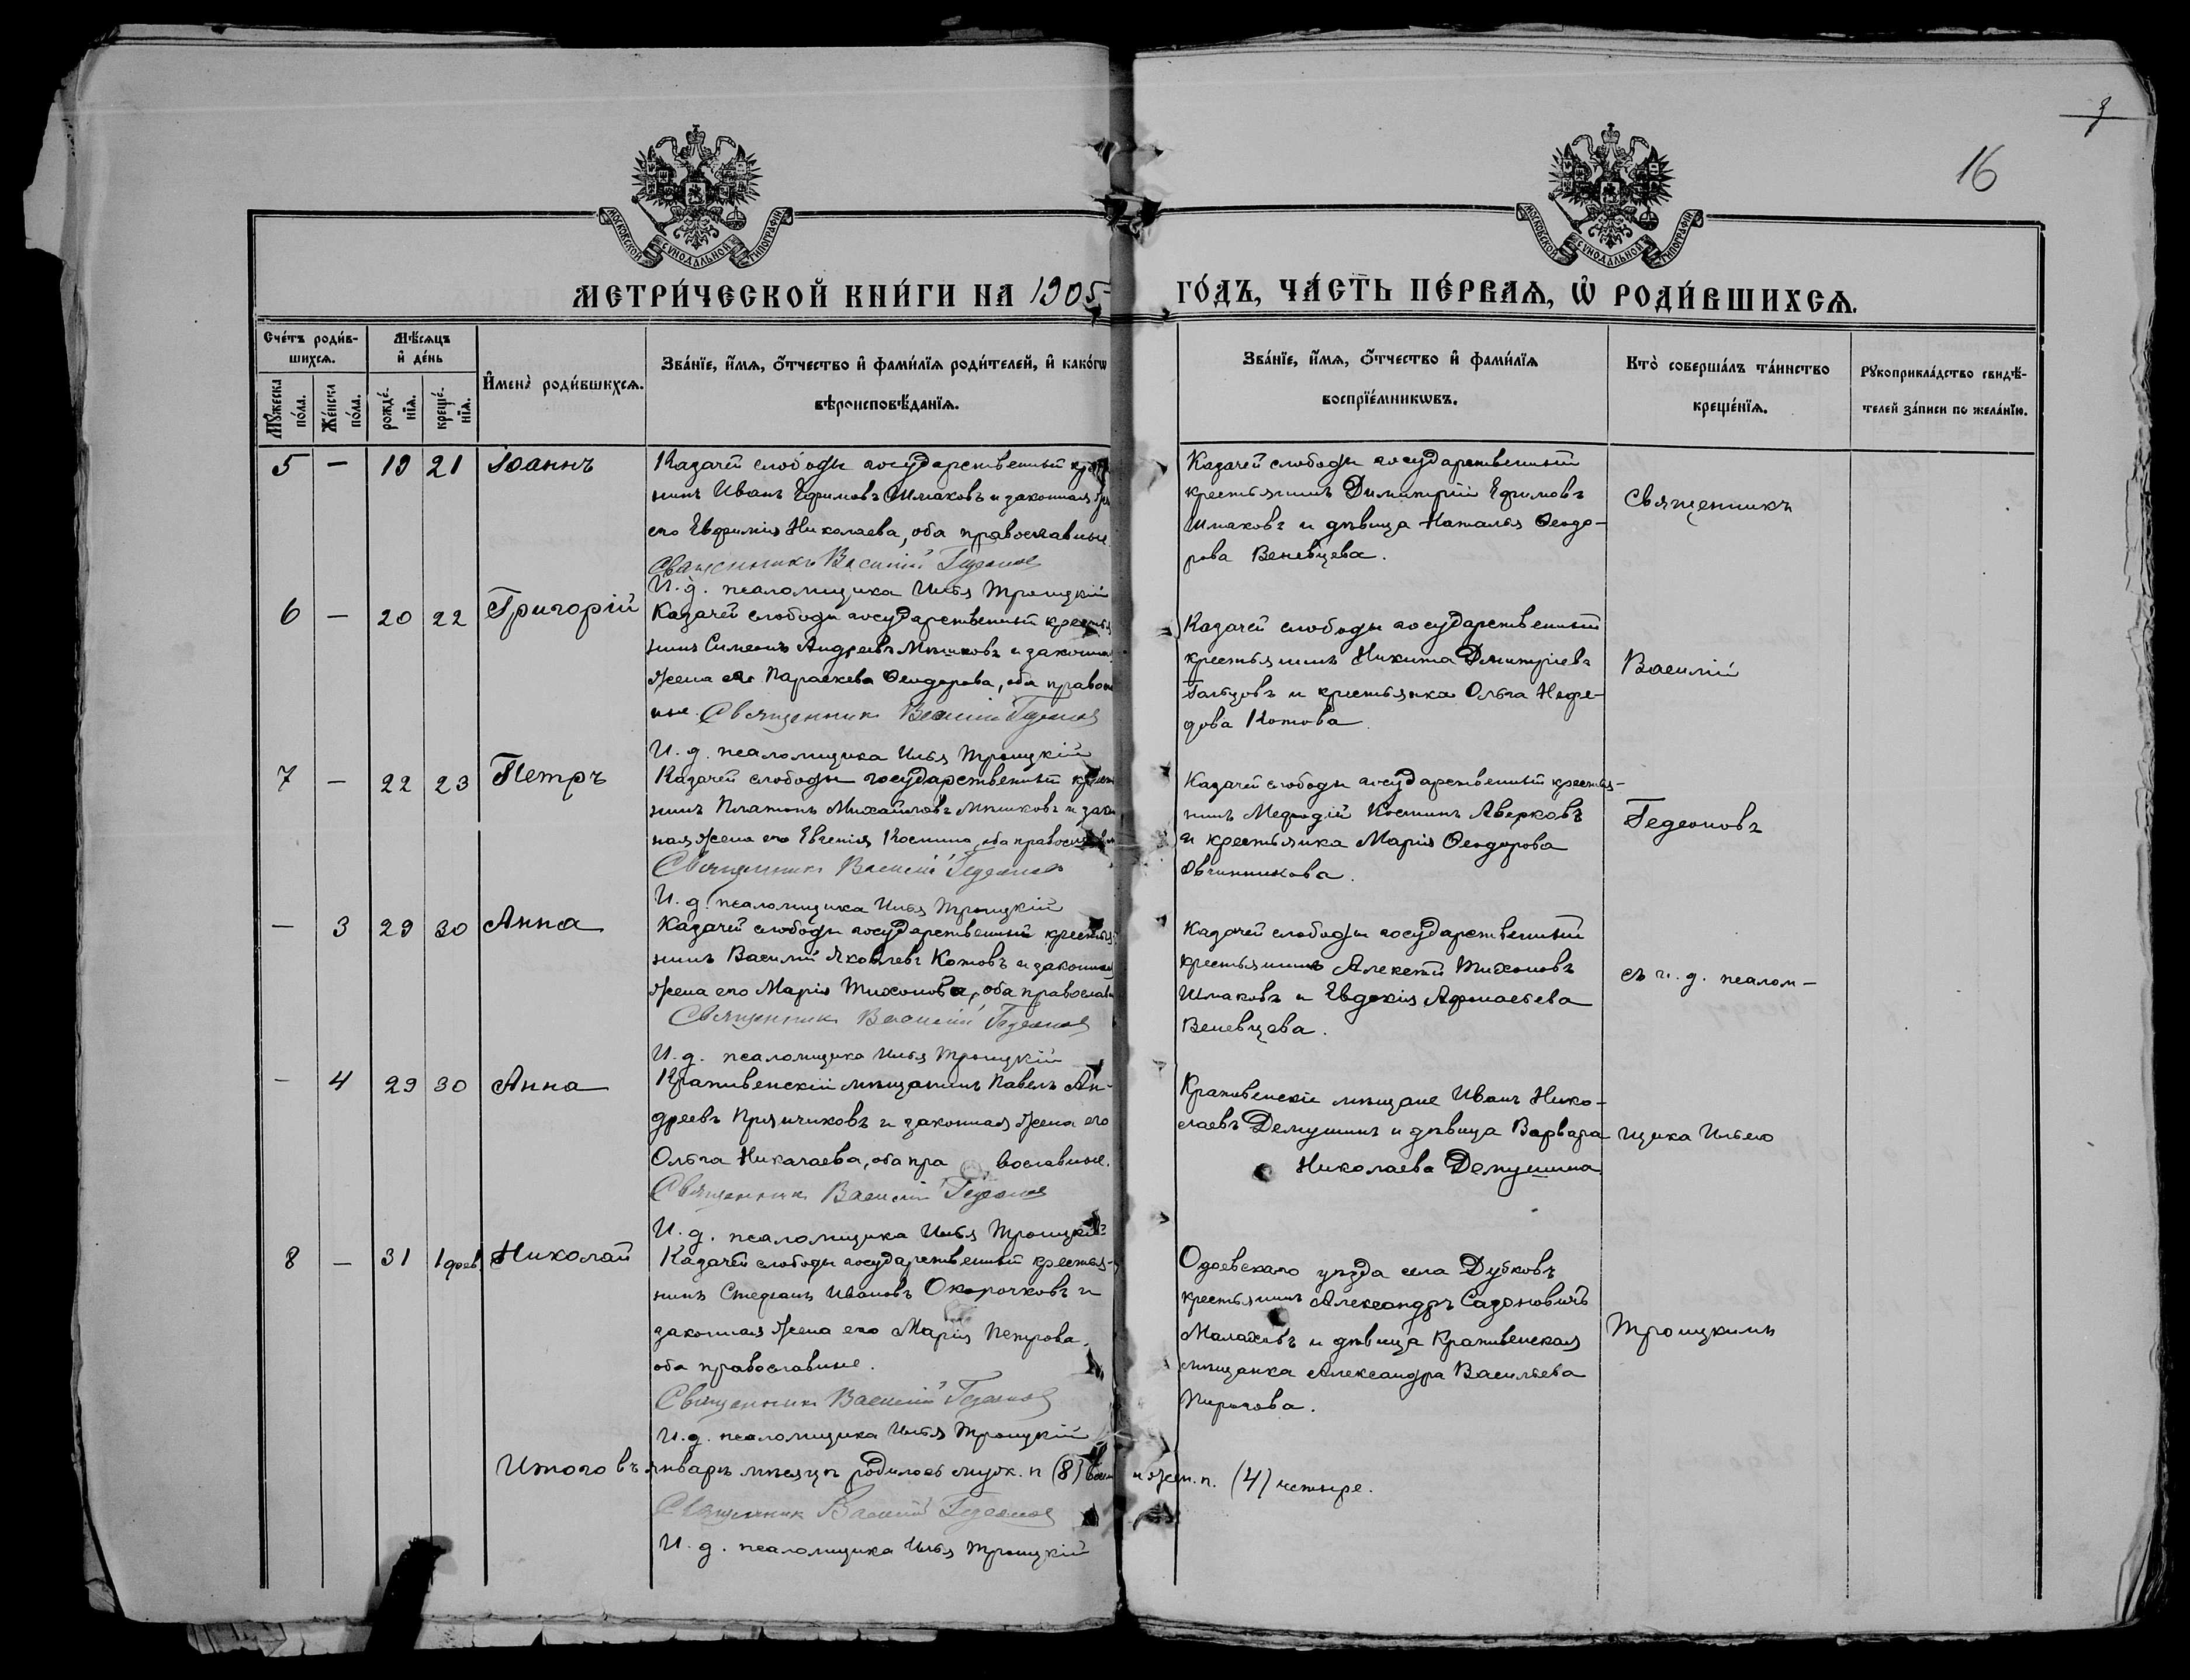 16
МОСКОВСКОЙ СѴНОДАЛЬНОЙ ТИПОГРАФІИ
МОСКОВСКОЙ СѴНОДАЛЬНОЙ ТИПОГРАФІИ
МЕТРИ́ЧЕСКОЙ КНИ́ГИ НА 1905 ГО́ДЪ, ЧА́СТЬ ПЕ́РВАЯ, Ѡ҆ РОДИ́ВШИХСЯ.
Сче́тъ роди́в-
шихся.
Мѹ́жеска по́ла.
Же́нска по́ла.
Мѣ́сяцъ
и҆ де́нь
рожде́-
нїя.
креще́-
нїя.
И҆мена̀ роди́вшихся.
Зва́нїе, и҆́мя, ѻ҆́тчество и҆ фами́лїя роди́телей, и҆ како́гѡ
вѣроисповѣ́данїя.
Зва́нїе, и҆́мя, ѻ҆́тчество и҆ фами́лїя
воспрїе́мникѡвъ.
Кто̀ соверша́лъ та́инство
креще́нїя.
Рѹкоприкла́дство свидѣ́-
телей за́писи по жела́нїю.
5 — 19 21 Іоаннъ
Казачей слободы государственный кре
нинъ Иванъ Ефимовъ Шмаковъ и законная
его Евфимія Николаева, оба православные
Священникъ Василій Гедеоновъ
И. д. псаломщика Илья Троицкій
Казачей слободы государственный
крестьянинъ Димитрій Ефимовъ
Шмаковъ и дѣвица Наталья Ѳеодо-
рова Веневцева.
Священникъ
6 — 20 22 Григорій
Казачей слободы государственный крестья
нинъ Симеонъ Андреевъ Мѣшковъ и законная
жена его Параскева Ѳеодорова, оба правос
ные. Священникъ Василій Гедеоновъ
И. д. псаломщика Илья Троицкій
Казачей слободы государственный
крестьянинъ Никита Дмитріевъ
Гальцовъ и крестьянка Ольга Нефе-
дова Котова.
Василій
7 — 22 23 Петръ
Казачей слободы государственный крест
нинъ Платонъ Михайловъ Мѣшковъ и зако
ная жена его Евгенія Костина, оба православ
Священникъ Василій Гедеоновъ
И. д. псаломщика Илья Троицкій
Казачей слободы государственный крестья-
нинъ Мефодій Костинъ Аверковъ
и крестьянка Марія Ѳеодорова
Овчинникова.
Гедеоновъ
— 3 29 30 Анна
Казачей слободы государственный крестья
нинъ Василій Яковлевъ Котовъ и законная
жена его Марія Тихонова, оба православ
Священникъ Василій Гедеоновъ
И. д. псаломщика Илья Троицкій
Казачей слободы государственный
крестьянинъ Алексѣй Тихоновъ
Шмаковъ и Евдокія Афонасьева
Веневцева.
съ и. д. псалом-
— 4 29 30 Анна
Крапивенскій мѣщанинъ Павелъ Ан-
дреевъ Пряничиковъ и законная жена его
Ольга Николаева, оба пра вославные.
Священникъ Василій Гедеоновъ
И. д. псаломщика Илья Троицкій
Крапивенскіе мѣщане Иванъ Нико-
лаевъ Демушинъ и дѣвица Варвара
Николаева Демушина
щика Ильею
8 — 31 1 фев. Николай
Казачей слободы государственный крестья-
нинъ Стефанъ Ивановъ Окорочковъ и
законная жена его Марія Петрова,
оба православные.
Священникъ Василій Гедеоновъ
И. д. псаломщика Илья Троицкій
Одоевскаго уѣзда села Дубковъ
крестьянинъ Александръ
Малаховъ и дѣвица Крапивенская
мѣщанка Александра Васильева
Пирогова.
Троицкимъ
Итого въ январѣ мѣсяцѣ родилось муж. п (8) и жен. п. (4) четыре.
Священникъ Василій Гедеоновъ
И. д. псаломщика Илья Троицкій